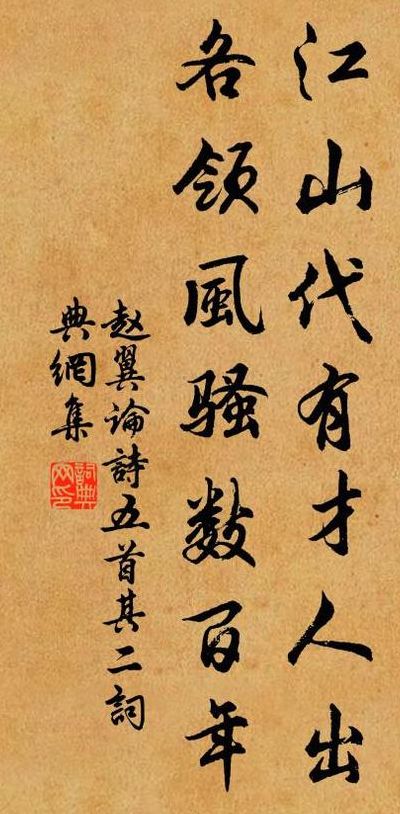 江山代有才人出
各领風骚数百年
赵翼论詩五首其二詞
典網集
詞典网印